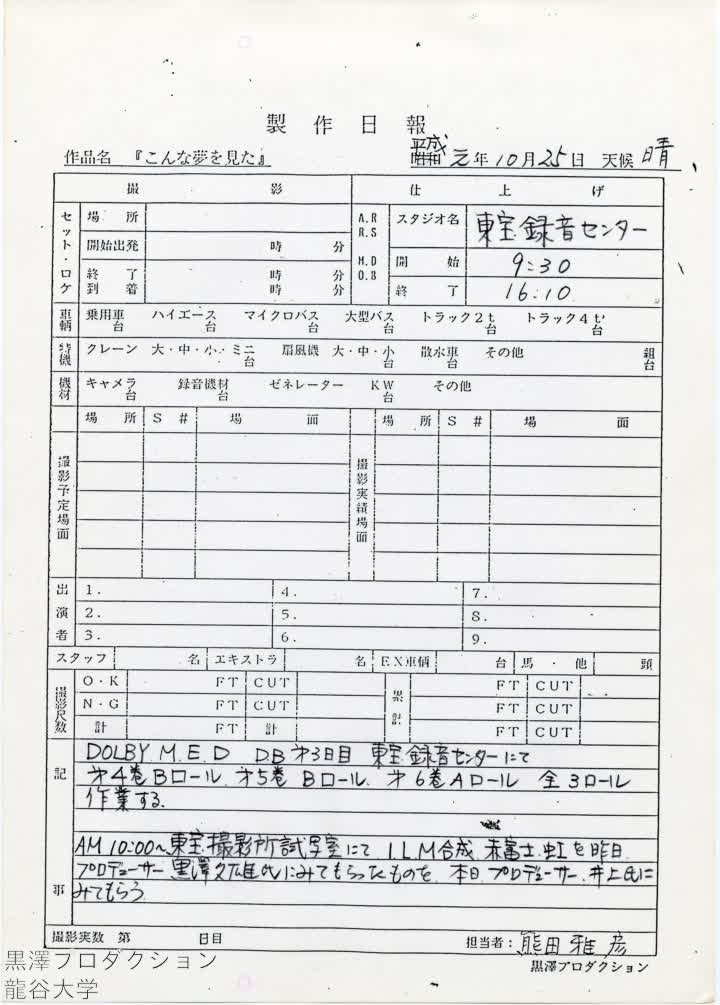 製作日報
作品名 『こんな夢を見た』 平成 昭和 元年10月25日 天候 晴
撮影 仕上げ
セット・ロケ 場所 A.R R.S M.D O.B スタジオ名 東宝録音センター
開始出発 時 分 開始 9:30
終了到着 時 分 時 分 終了 16:10
車輌 乗用車 台 ハイエース 台 マイクロバス 台 大型バス 台 トラック2t 台 トラック4t 台
特機 クレーン 大・中・小・ミニ 台 扇風機 大・中・小 台 散水車 台 その他 組 台
機材 キャメラ 台 録音機材 台 ゼネレーター KW 台 その他
撮影予定場面 場所 S# 場面 撮影実績場面 場所 S# 場面
出演者 1. 4. 7.
2. 5. 8.
3. 6. 9.
スタッフ 名 エキストラ 名 EX車輌 台 馬・他 頭
撮影尺数 O・K FT CUT 累計 FT CUT
N・G FT CUT FT CUT
計 FT 計 FT CUT
記事
DOLBY M.E.D D.B 才3日目 東宝録音センターにて
才4巻Bロール、才5巻Bロール、才6巻Aロール 全3ロール
作業する。
AM 10:00~東宝撮影所試写室にて I.L.M合成、赤富士、虹を昨日
プロデューサー黒澤久雄氏にみてもらったものを、本日、プロデューサー、井上氏に
みてもらう。
撮影実数 第 日目 担当者: 熊田雅彦
黒澤プロダクション
黒澤プロダクション
龍谷大学